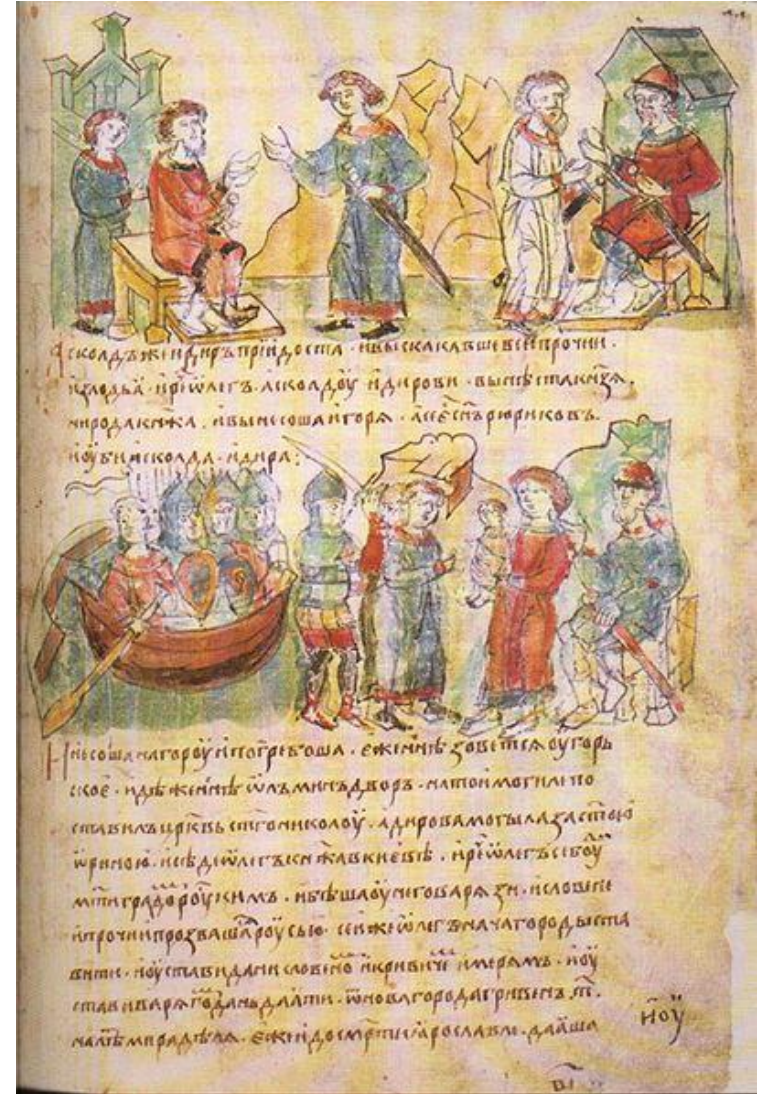 Асколдъ же и диръ придоста · ивыскакавше вси прочии ·
излодьѧ · ирч҃е ѡлегъ асколдоу идирови · вы нѣста кнѧзѧ ·
ни рода кнѧжа · ивынесоша игорѧ · а се є сн҃ъ рюриковъ ·
ноубиша асколда идира :
Инесоша на гороу ипогребоша · еже нн҃ѣ зоветсѧ оугорь
скоє · идѣже нн҃ѣ ѡлъминъ дворъ · на тои могилѣ по
ставилъ црк҃вь ст҃го николоу · адирова могыла за ст҃ою
ѡриною · исѣде ѡлегъ кнѧжа в києвѣ · ирч҃е ѡлегъ се боуд
мт҃и градо роускимъ · ибѣша оу него варѧзи · исловене
ипрочии прозвашасѧ роусью · сеи же ѡлегъ нача городы ста
вити · ноустави дани словено икривиче имерѧмъ · ноу
стави варѧго дань даѧти · ѿ новагорода гривенъ т҃ ·
на лѣ мира дѣлѧ · еже и до смр҃ти ѧрославлѧ даѧша
ноу